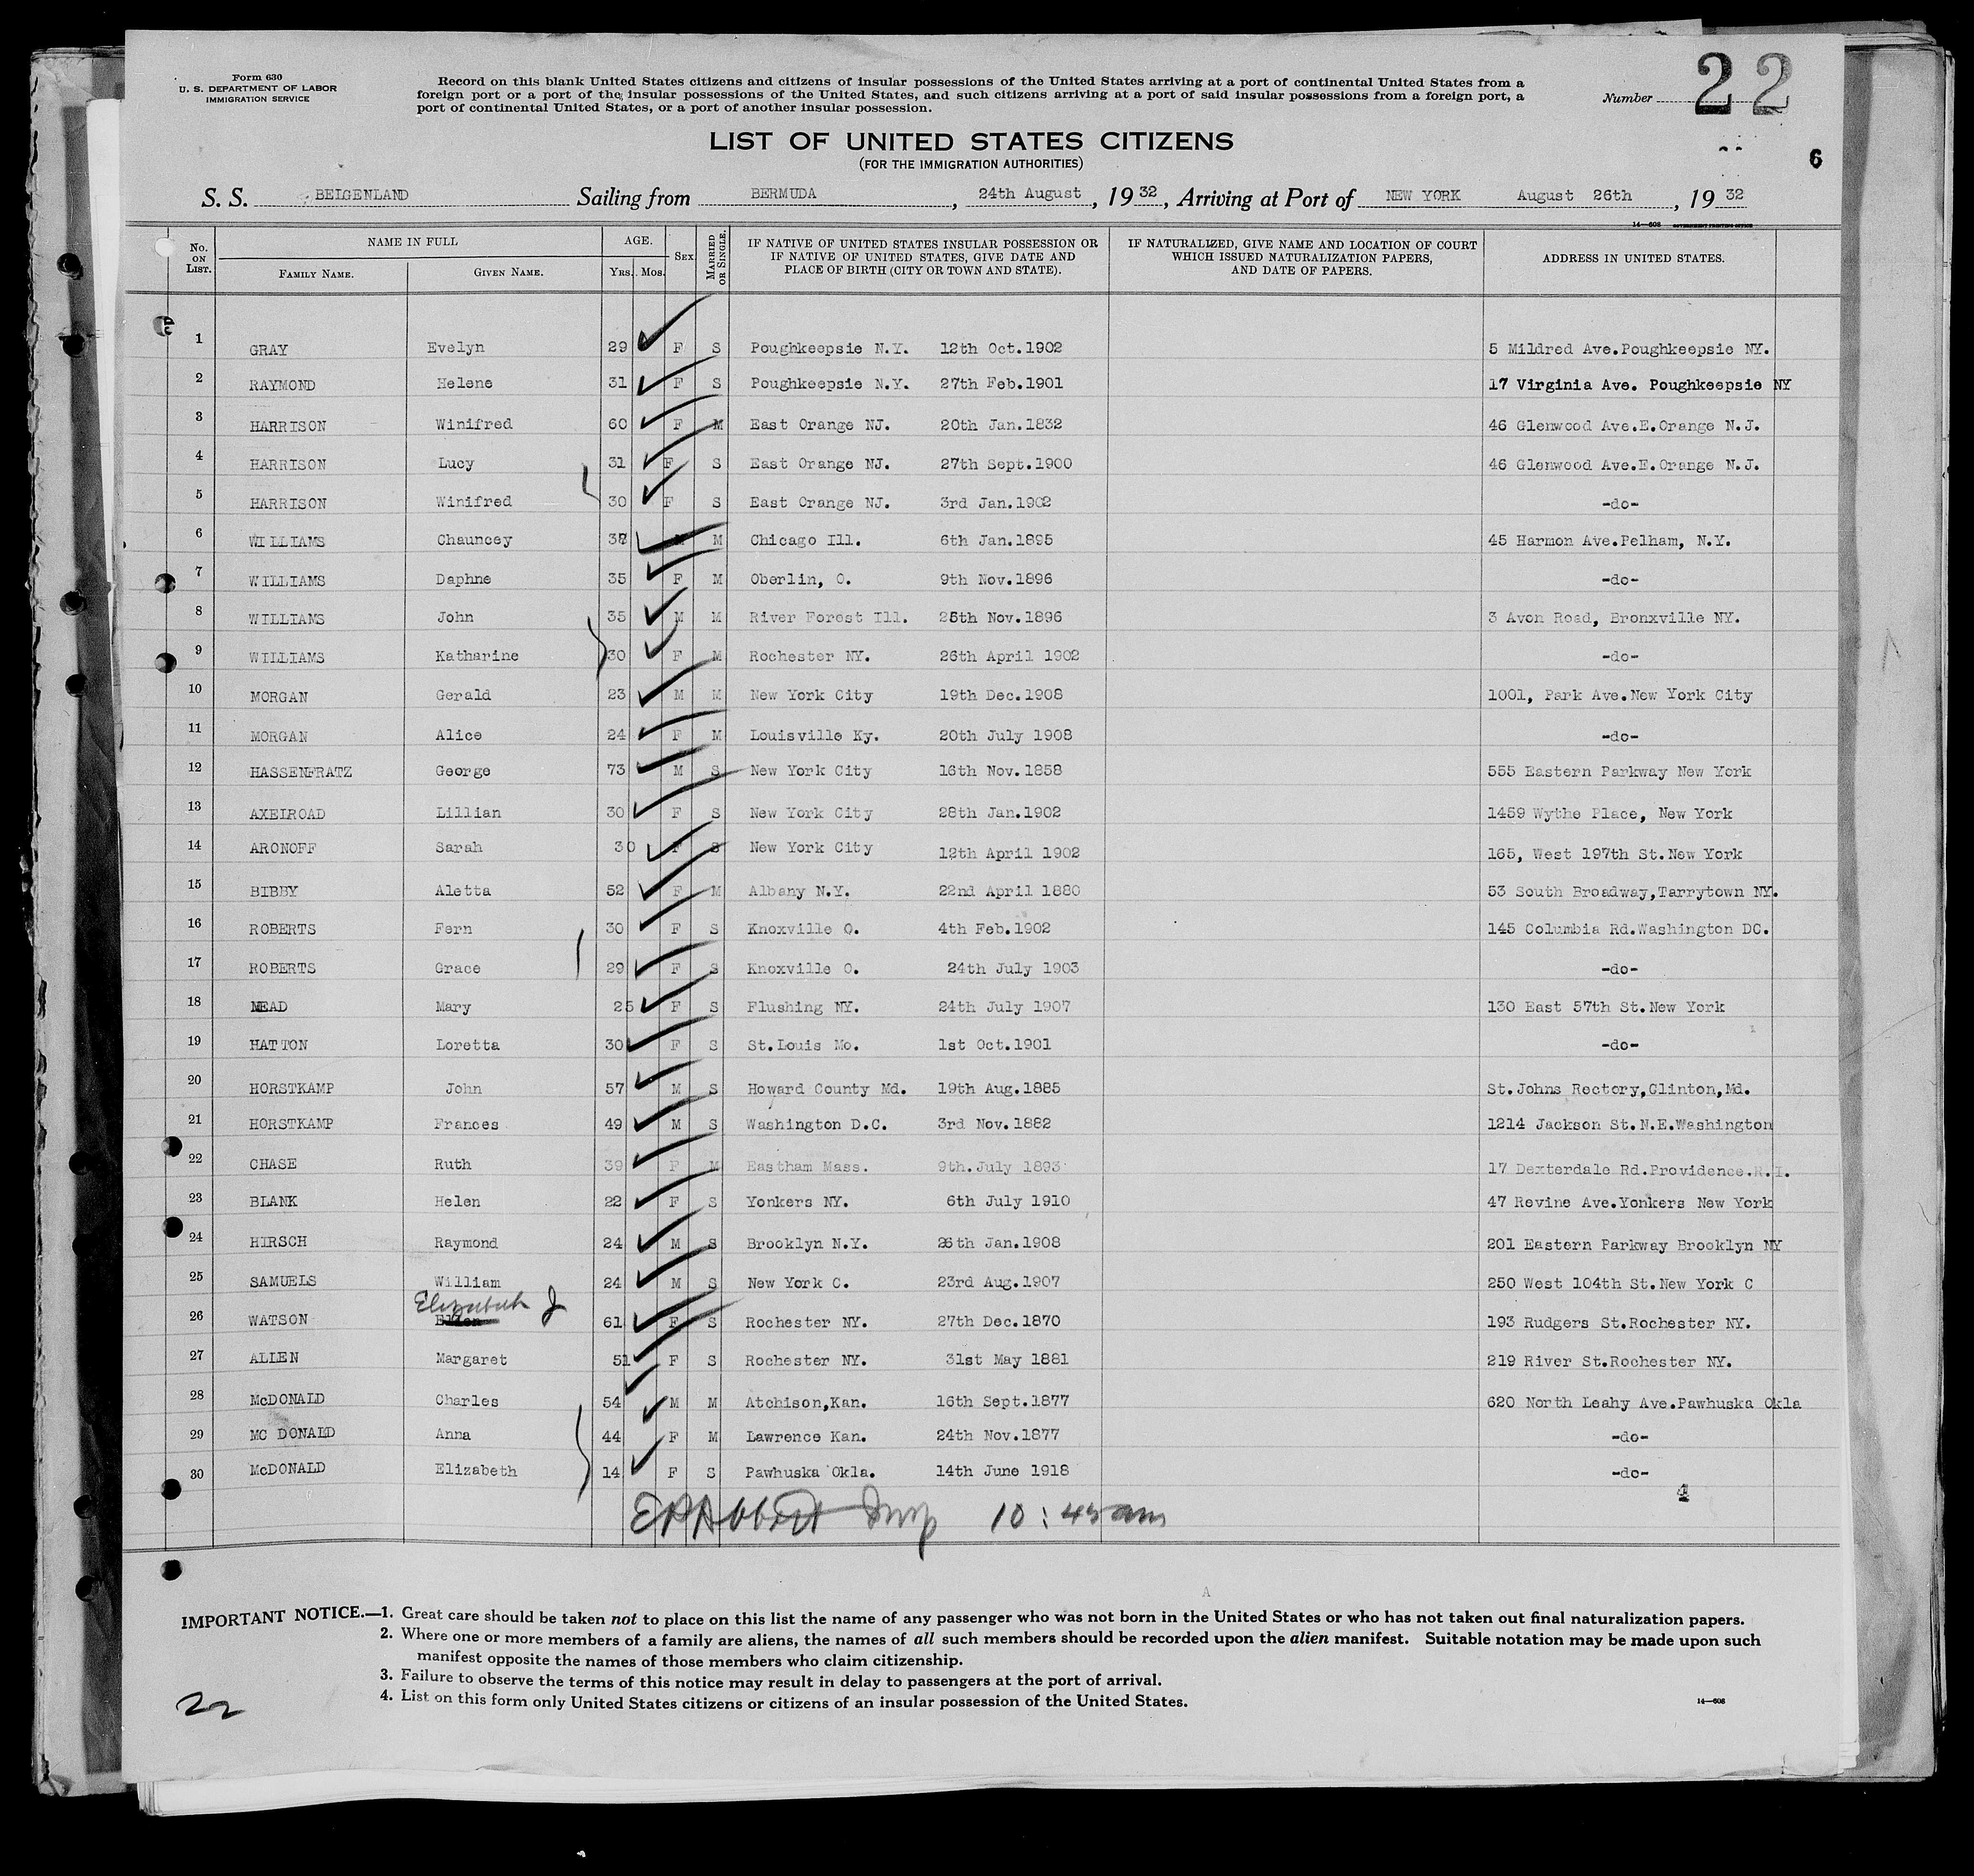 Form 630
U. S. DEPARTMENT OF LABOR
IMMIGRATION SERVICE
Record on this blank United States citizens and citizens of insular possessions of the United States arriving at a port of continental United States from a
foreign port or a port of the insular possessions of the United States, and such citizens arriving at a port of said insular possessions from a foreign port, a
port of continental United States, or a port of another insular possession.
Number 22
6
LIST OF UNITED STATES CITIZENS
(FOR THE IMMIGRATION AUTHORITIES)
S. S. BELGENLAND Sailing from BERMUDA, 24th August, 1932, Arriving at Port of NEW YORK August 26th, 1932
14—608 GOVERNMENT PRINTING OFFICE
No. ON LIST. NAME IN FULL FAMILY NAME. GIVEN NAME. AGE. Yrs. Mos. Sex MARRIED OR SINGLE. IF NATIVE OF UNITED STATES INSULAR POSSESSION OR IF NATIVE OF UNITED STATES, GIVE DATE AND PLACE OF BIRTH (CITY OR TOWN AND STATE). IF NATURALIZED, GIVE NAME AND LOCATION OF COURT WHICH ISSUED NATURALIZATION PAPERS, AND DATE OF PAPERS. ADDRESS IN UNITED STATES.
1 GRAY Evelyn 29 F S Poughkeepsie N.Y. 12th Oct.1902 5 Mildred Ave.Poughkeepsie NY.
2 RAYMOND Helene 31 F S Poughkeepsie N.Y. 27th Feb.1901 17 Virginia Ave. Poughkeepsie NY
3 HARRISON Winifred 60 F M East Orange NJ. 20th Jan.1832 46 Glenwood Ave.E.Orange N.J.
4 HARRISON Lucy 31 F S East Orange NJ. 27th Sept.1900 46 Glenwood Ave.E.Orange N.J.
5 HARRISON Winifred 30 F S East Orange NJ. 3rd Jan.1902 -do-
6 WILLIAMS Chauncey 37 M M Chicago Ill. 6th Jan.1895 45 Harmon Ave.Pelham, N.Y.
7 WILLIAMS Daphne 35 F M Oberlin, O. 9th Nov.1896 -do-
8 WILLIAMS John 35 M M River Forest Ill. 25th Nov.1896 3 Avon Road, Bronxville NY.
9 WILLIAMS Katharine 30 F M Rochester NY. 26th April 1902 -do-
10 MORGAN Gerald 23 M M New York City 19th Dec.1908 1001, Park Ave.New York City
11 MORGAN Alice 24 F M Louisville Ky. 20th July 1908 -do-
12 HASSENFRATZ George 73 M S New York City 16th Nov.1858 555 Eastern Parkway New York
13 AXELROAD Lillian 30 F S New York City 28th Jan.1902 1459 Wythe Place, New York
14 ARONOFF Sarah 30 F S New York City 12th April 1902 165, West 197th St.New York
15 BIBBY Aletta 52 F M Albany N.Y. 22nd April 1880 53 South Broadway,Tarrytown NY.
16 ROBERTS Fern 30 F S Knoxville O. 4th Feb.1902 145 Columbia Rd.Washington DC.
17 ROBERTS Grace 29 F S Knoxville O. 24th July 1903 -do-
18 MEAD Mary 25 F S Flushing NY. 24th July 1907 130 East 57th St.New York
19 HATTON Loretta 30 F S St.Louis Mo. 1st Oct.1901 -do-
20 HORSTKAMP John 57 M S Howard County Md. 19th Aug.1885 St.Johns Rectory,Clinton,Md.
21 HORSTKAMP Frances 49 M S Washington D.C. 3rd Nov.1882 1214 Jackson St.N.E.Washington
22 CHASE Ruth 39 F M Eastham Mass. 9th.July 1893 17 Dexterdale Rd.Providence.R.I.
23 BLANK Helen 22 F S Yonkers NY. 6th July 1910 47 Revine Ave.Yonkers New York
24 HIRSCH Raymond 24 M S Brooklyn N.Y. 26th Jan.1908 201 Eastern Parkway Brooklyn NY
25 SAMUELS William 24 M S New York C. 23rd Aug.1907 250 West 104th St.New York C
Elizabeth J
26 WATSON Ellen 61 F S Rochester NY. 27th Dec.1870 193 Rudgers St.Rochester NY.
27 ALLEN Margaret 51 F S Rochester NY. 31st May 1881 219 River St.Rochester NY.
28 McDONALD Charles 54 M M Atchison,Kan. 16th Sept.1877 620 North Leahy Ave.Pawhuska Okla
29 MC DONALD Anna 44 F M Lawrence Kan. 24th Nov.1877 -do-
30 McDONALD Elizabeth 14 F S Pawhuska Okla. 14th June 1918 -do-
4
10:45 am
A
IMPORTANT NOTICE.—1. Great care should be taken not to place on this list the name of any passenger who was not born in the United States or who has not taken out final naturalization papers.
2. Where one or more members of a family are aliens, the names of all such members should be recorded upon the alien manifest. Suitable notation may be made upon such
manifest opposite the names of those members who claim citizenship.
3. Failure to observe the terms of this notice may result in delay to passengers at the port of arrival.
4. List on this form only United States citizens or citizens of an insular possession of the United States.
14—608
22